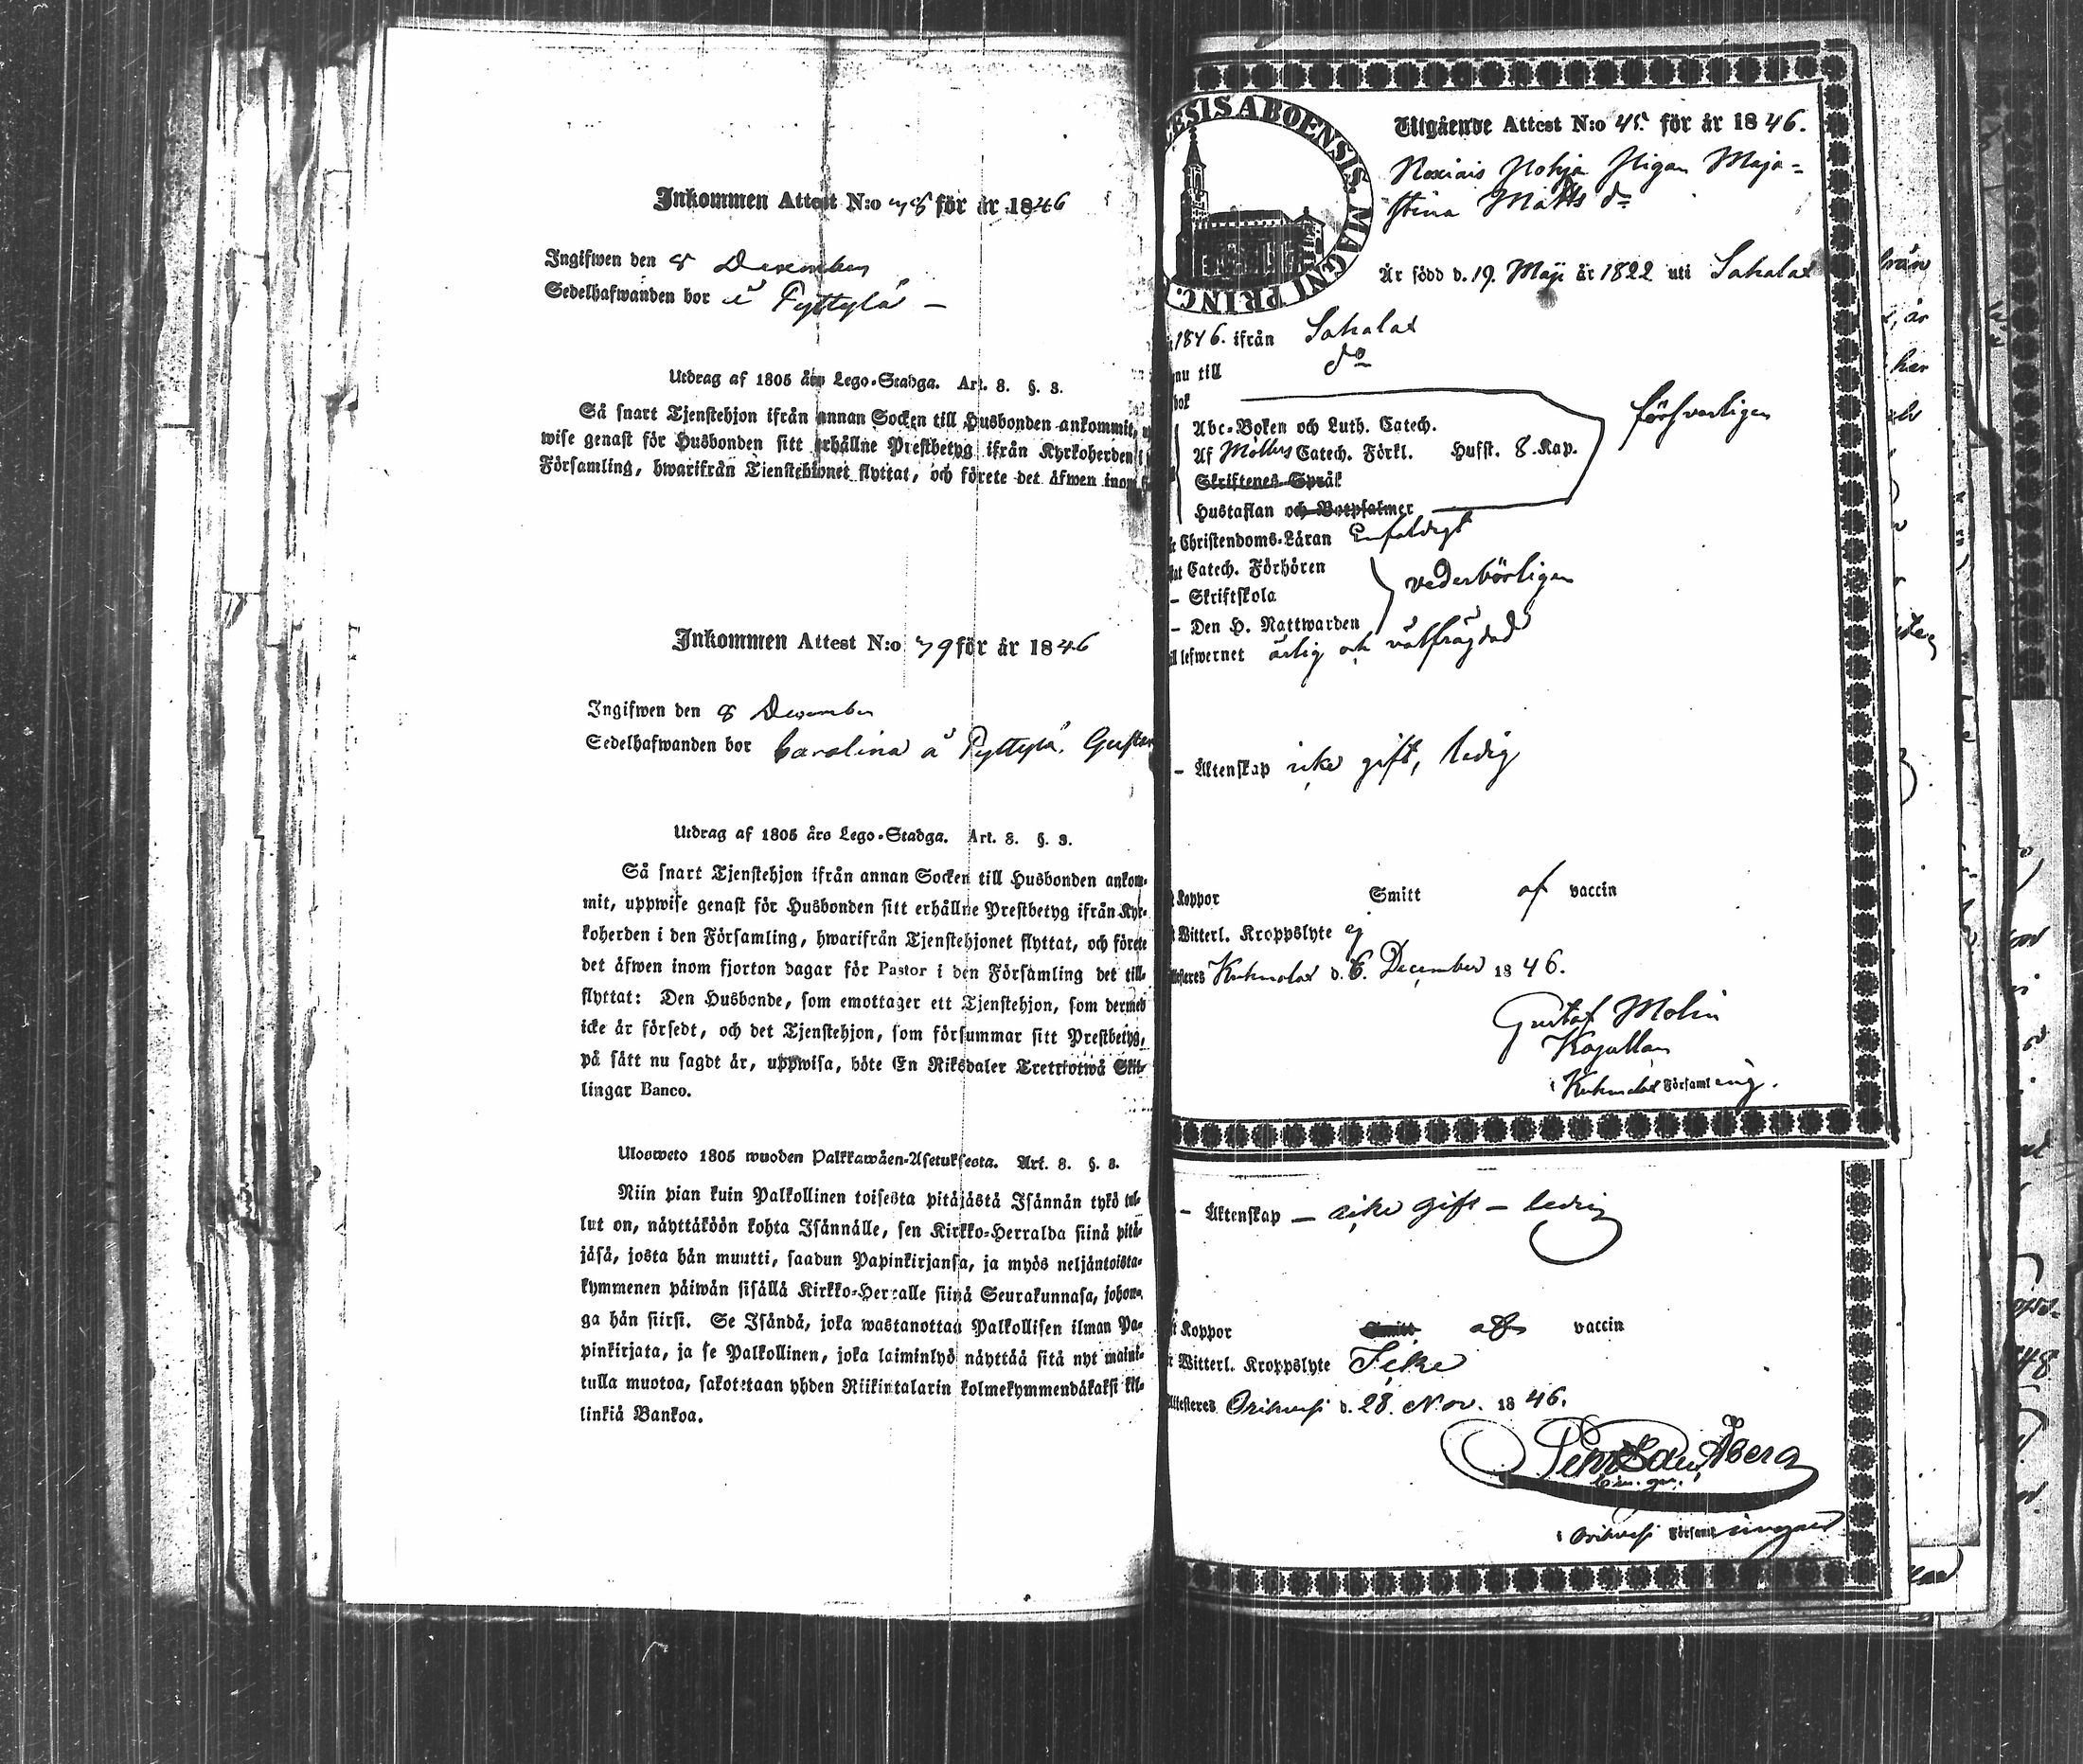 Inkommen Attest N:o 78 för år 1846
Ingifwen den 8 December
Sedelhafwanden bor i Pyttylä —
Utdrag af 1805 års Lego-Stadga. Art. 8. §. 3.
Så snart Tjenstehjon ifrån annan Socken till Husbonden ankommit,
wise genast för Husbonden sitt erhållne Prestbetyg ifrån Kyrkoherden i
Församling, hwarifrån Tienstehionet flyttat, och förete det äfwen inom
Inkommen Attest N:o 79 för år 1846
Ingifwen den 8 December
Sedelhafwanden bor Carolina å Pyttylä,
Utdrag af 1805 års Lego-Stadga. Art. 8. §. 3.
Så snart Tjenstehjon ifrån annan Socken till Husbonden ankom-
mit, uppwise genast för Husbonden sitt erhållne Prestbetyg ifrån Kyr-
koherden i den Församling, hwarifrån Tjenstehjonet flyttat, och förete
det äfwen inom fjorton dagar för Pastor i den Församling det till-
flyttat: Den Husbonde, som emottager ett Tjenstehjon, som dermed
icke är försedt, och det Tjenstehjon, som försummar sitt Prestbetyg,
på sätt nu sagdt är, uppwisa, böte En Riksdaler Trettiotwå Skil-
lingar Banco.
Ulosweto 1805 wuoden Palkkawäen-Asetuksesta. Art. 8. §. 3.
Niin pian kuin Palkollinen toisesta pitäjästä Isännän tykö tul-
lut on, näyttäköön kohta Isännälle, sen Kirkko-Herralda siinä pitä-
jäsä, josta hän muutti, saadun Papinkirjansa, ja myös neljäntoista-
kymmenen päiwän sisällä Kirkko-Herralle siinä Seurakunnasa, johon-
ga hän siirsi. Se Isändä, joka wastanottaa Palkollisen ilman Pa-
pinkirjata, ja se Palkollinen, joka laiminlyö näyttää sitä nyt maini-
tulla muotoa, sakotetaan yhden Riikintalarin kolmekymmendäkaksi kil-
linkiä Bankoa.
ESIS ABOENSIS. MAGNI PRINC.
Utgående Attest N:o 45. för år 1846.
Nohja Pigan Maja-
stina Matts dr
Är född d. 19. Maji år 1822 uti Sahalax
1846. ifrån Sahalax
nu till do
bok
Abc-Boken och Luth. Catech.
Af Möllers Catech. Förkl. Husst. 8. Kap.
försvarligen
Skriftenes Språk
Hustaflan och Botpsalmer
Christendoms-Läran Enfaldigt
Catech. Förhören
— Skriftskola
vederbörligen
— Den H. Nattwarden
lefwernet ärlig och välfrägdad
— Äktenskap icke gift, ledig
Koppor Smitt af vaccin
Witterl. Kroppslyte ej
Kuhmalax d. 6. December 1846.
Gustaf Molin
Kapellan
i Kuhmalax Församling.
— Äktenskap — icke gift — ledig
Koppor Smitt af vaccin
Witterl. Kroppslyte Icke
Attesteres Orihvesi d. 28. Nov. 1846.
Åberg
i Orihvesi Församlingar